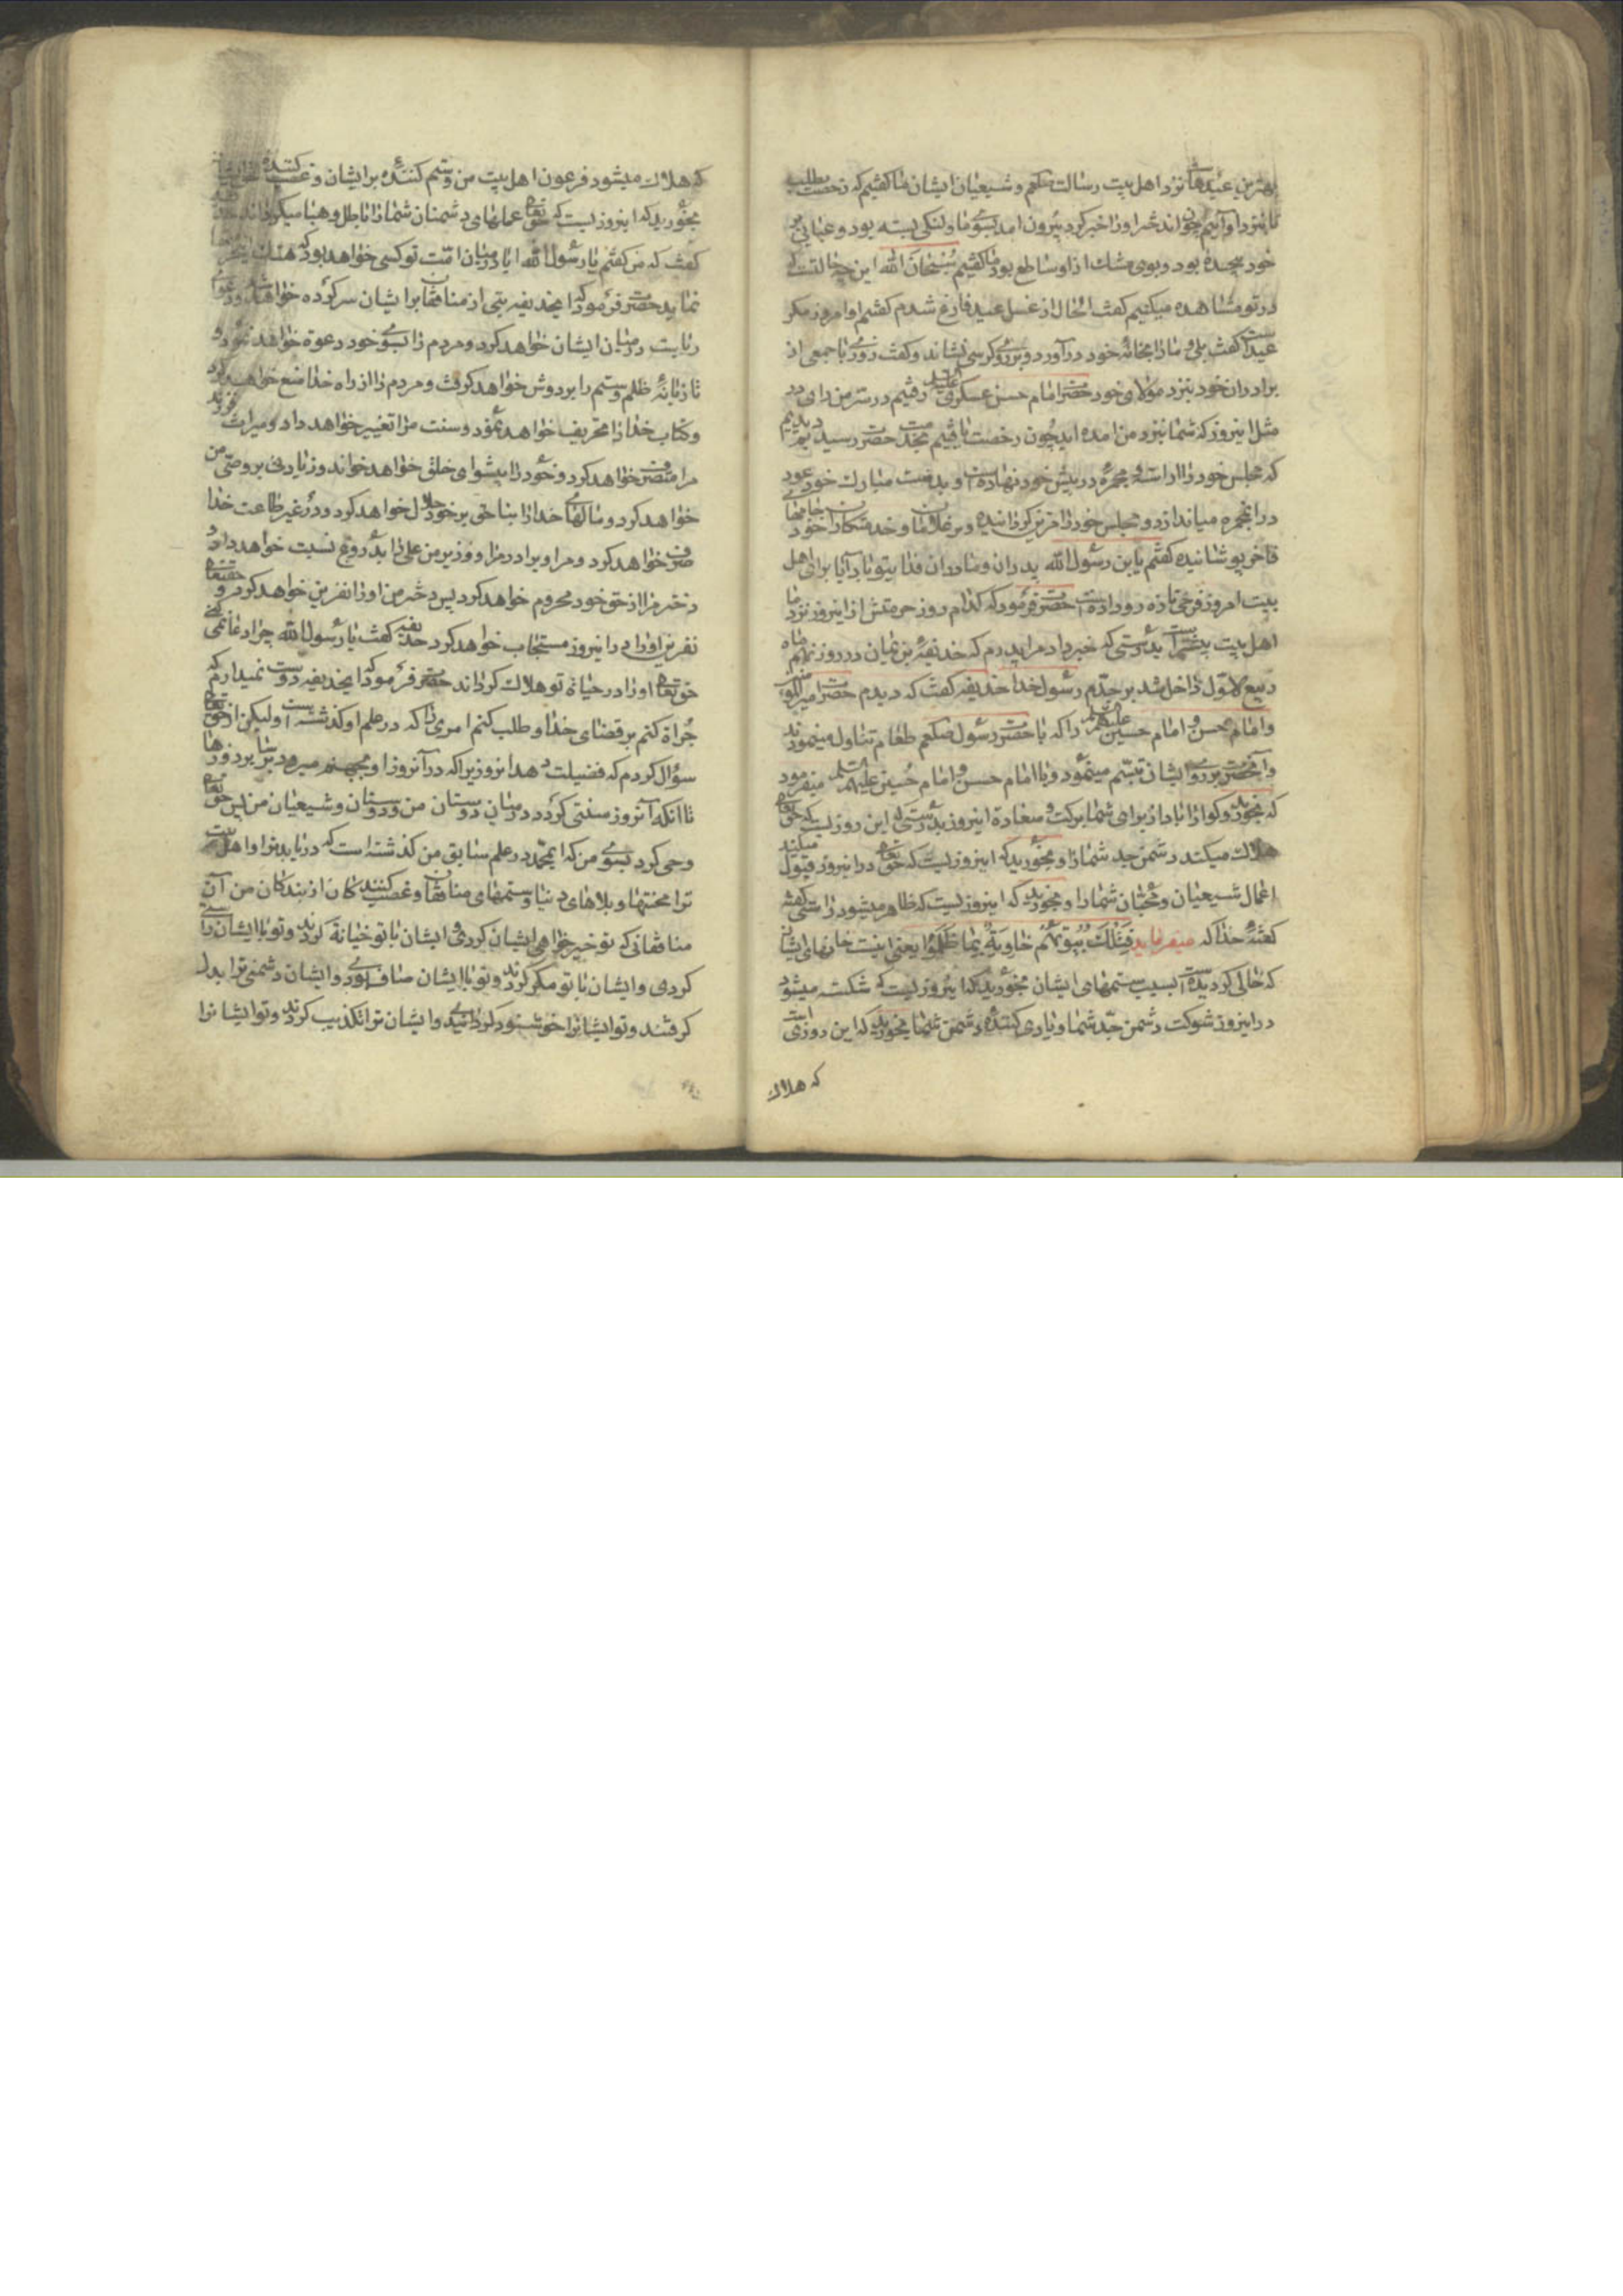 بهترین عیدهاست نزد اهل بیت رسالت صلعم و شیعیان ایشان ما کفتیم که رخصت بطلب
تا بنزد او آئیم چون اند خبر او را خبر کرد بیرون امد بسوی ما و لنکی بسته بود و عبائی بر
خود پیچیده بود و بوی مشک از او ساطع بود ما کفتیم سُبْحٰانَ الله این چه حالتست که
در تو مشاهده میکنیم کفت الحال از غسل عید فارغ شدم کفتیم او امروز مکر
عید است کفت بلی و ما را بخانهٔ خود در آورد و بر روی کرسی نشاند و کفت روزی با جمعی از
برادران خود بنزد مولای خود حضرت امام حسن عسکری علیه السلام رفتیم در سرّ من رای در
مثل اینروز که شما بنزد من امده اید چون رخصت یافتیم بخدمت حضرت رسیدیم دیدیم
که مجلس خود را اراسته و مجمرهٔ در پیش خود نهاده است و بدست مبارک خود عود
در ان مجمره میاندازد و مجلس خود را مزین کردانیده و بر غلامان و خدمتکاران خود جامهای
فاخر پوشانیده کفتم یابن رسول الله پدران و مادران فدای تو باد آیا برای اهل
بیت امروز فرحی تازه رو داده است حضرت فرمود که کدام روز حرمتش از اینروز نزد ما
اهل بیت بیشتر است بدرستی که خبر داد مرا پدرم که حذیفة بن یمان در روز نهم ماه
ربیع الاوّل داخل شد بر جدّم رسول خدا حذیفه کفت که دیدم حضرت امیر المؤمنین
و امام حسن و امام حسین علیهم السلام را که با حضرت رسول صلعم طعام تناول مینمودند
و انحضرت بر روی ایشان تبسّم مینمود و با امام حسن و امام حُسین علیهم السلم میفرمود
که بخورید و کوارا باد از برای شما برکت و سعادة اینروز بدرستی که این روزیست که حق تعالی
هلاک میکند دشمن جد شما را و بخورید که اینروزیست که حق تعالی در اینروز قبول میکند
اعمال شیعیان و محبّان شما را و بخورید که اینروزیست که ظاهر میشود راستی کفته
کفتهٔ خدا که میفرماید فَتِلْكَ بُیُوتُهُمْ خٰاوِیَةً بِمٰا ظَلَمُوا یعنی اینست خانهای ایشان
که خالی کردیده است بسبب ستمهای ایشان بخورید که اینروزیست که شکسته میشود
در اینروز شوکت دشمن جدّ شما و یاری کنندهٔ دشمن شما بخورید که این روزی است
که هلاک
که هلاک میشود فرعون اهل بیت من و ستم کنندهٔ بر ایشان و غصب کنندهٔ
بخورید که اینروزیست که حق تعالی عملهای دشمنان شما را باطل و هبا میکرداند
کفت که من کفتم یا رسول الله ایا در میان امّت تو کسی خواهد بود که هتک
نماید حضرت فرمود که ایحذیفه بتی از منافقان بر ایشان سرکرده خواهد شد و دعوای
ریاست در میان ایشان خواهد کرد و مردم را بسوی خود دعوة خواهد نمود و
تازیانهٔ ظلم و ستم را بر دوش خواهد کرفت و مردم را از راه خدا منع خواهد کرد
و کتاب خدا را تحریف خواهد نمود و سنت مرا تغییر خواهد داد و میراث فرزند
مرا متصرف خواهد کرد و خود را پیشوای خلق خواهد خواند و زیادتی بر وصّی من
خواهد کرد و مالهای خدا را بناحق بر خود حلال خواهد کرد و در غیر طاعت خدا
صرف خواهد کرد و مرا و برادر مرا و وزیر من علی را بدروغ نسبت خواهد داد و
دختر مرا از حق خود محروم خواهد کرد پس دختر من او را نفرین خواهد کرد و حقتعالی
نفرین او را در اینروز مستجاب خواهد کرد حذیفه کفت یا رسول الله چرا دعا نمی کنی
حق تعالی او را در حیاة تو هلاک کرداند حضرت فرمود که ایحذیفه دوست نمیدارم که
جُراة کنم بر قضای خدا و طلب کنم امری را که در علم او کذشته است و لیکن از حق تعالی
سؤال کردم که فضیلت دهد انروز را که در آنروز او بجهنم میرود بر سایر روزها
تا انکه آنروز سنتی کردد در میان دوستان من و دوستان و شیعیان من پس حق تعالی
وحی کرد بسوی من که ایمحمّد در علم سابق من کذشته است که دریابد ترا و اهل بیت
ترا محنتها و بلاهای دنیا و ستمهای منافقان و غصب کنندکان از بندکان من آن
منافقانی که تو خیر خواهی ایشان کردی و ایشان با تو خیانة کردند و تو با ایشان راستی
کردی و ایشان با تو مکر کردند و تو با ایشان صاف بودی و ایشان دشمنی ترا بدل
کرفتند و تو ایشانرا خوشنود کردانیدی و ایشان ترا تکذیب کردند و تو ایشانرا